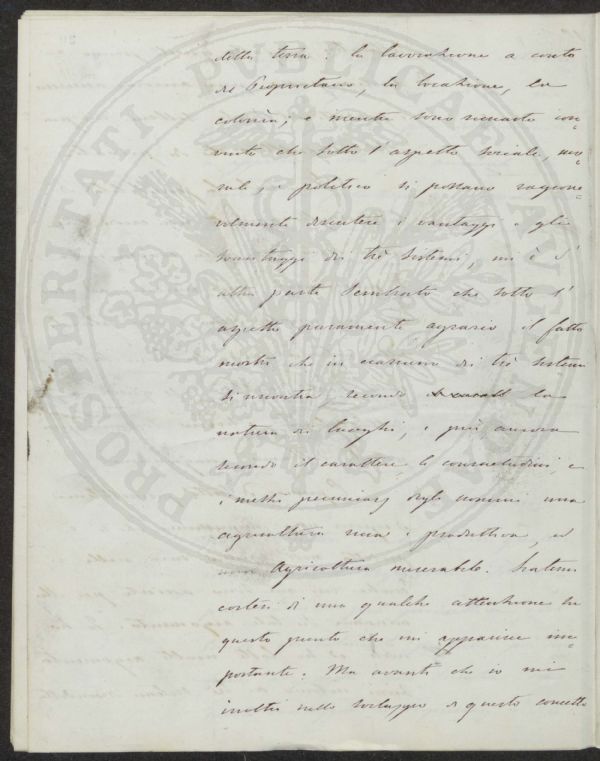 della terra: la lavorazione a conto
del Proprietario, la locazione, la
colonìa; e mentre sono rimasto con-
vinto che sotto l'aspetto sociale, mo-
rale, e politico si possano ragione-
volmente discutere i vantaggi e gli
svantaggi dei trè sistemi, mi è d'
altra parte sembrato che sotto l'
aspetto puramente agrario il fatto
mostri che in ciascuno dei trè sistemi
si incontra, secondo la
natura dei luoghi, e più ancora
secondo il carattere le consuetudini e
i mezzi pecuniarj degli uomini una
agricoltura ricca e produttiva, ed
una Agricoltura miserabile. Siatemi
cortesi di una qualche attenzione su
questo punto che mi apparisce im-
portante. Ma avanti che io mi
inoltri nello sviluppo di questo concetto
PROSPERITATI PUBLICAE